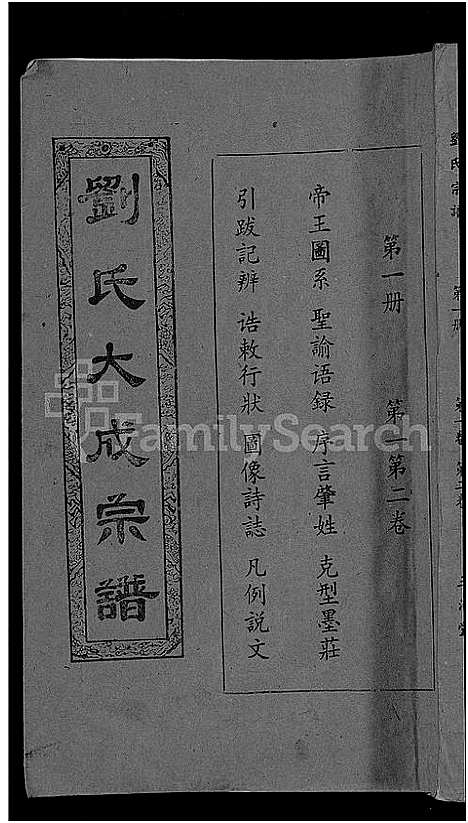 劉氏大成宗譜
第一册 第一第二卷
帝王圖系 聖諭语録 序言肇姓 克型墨莊
引跋記辨 诰敕行狀 圖像詩誌 凡例説文
FamilySearch